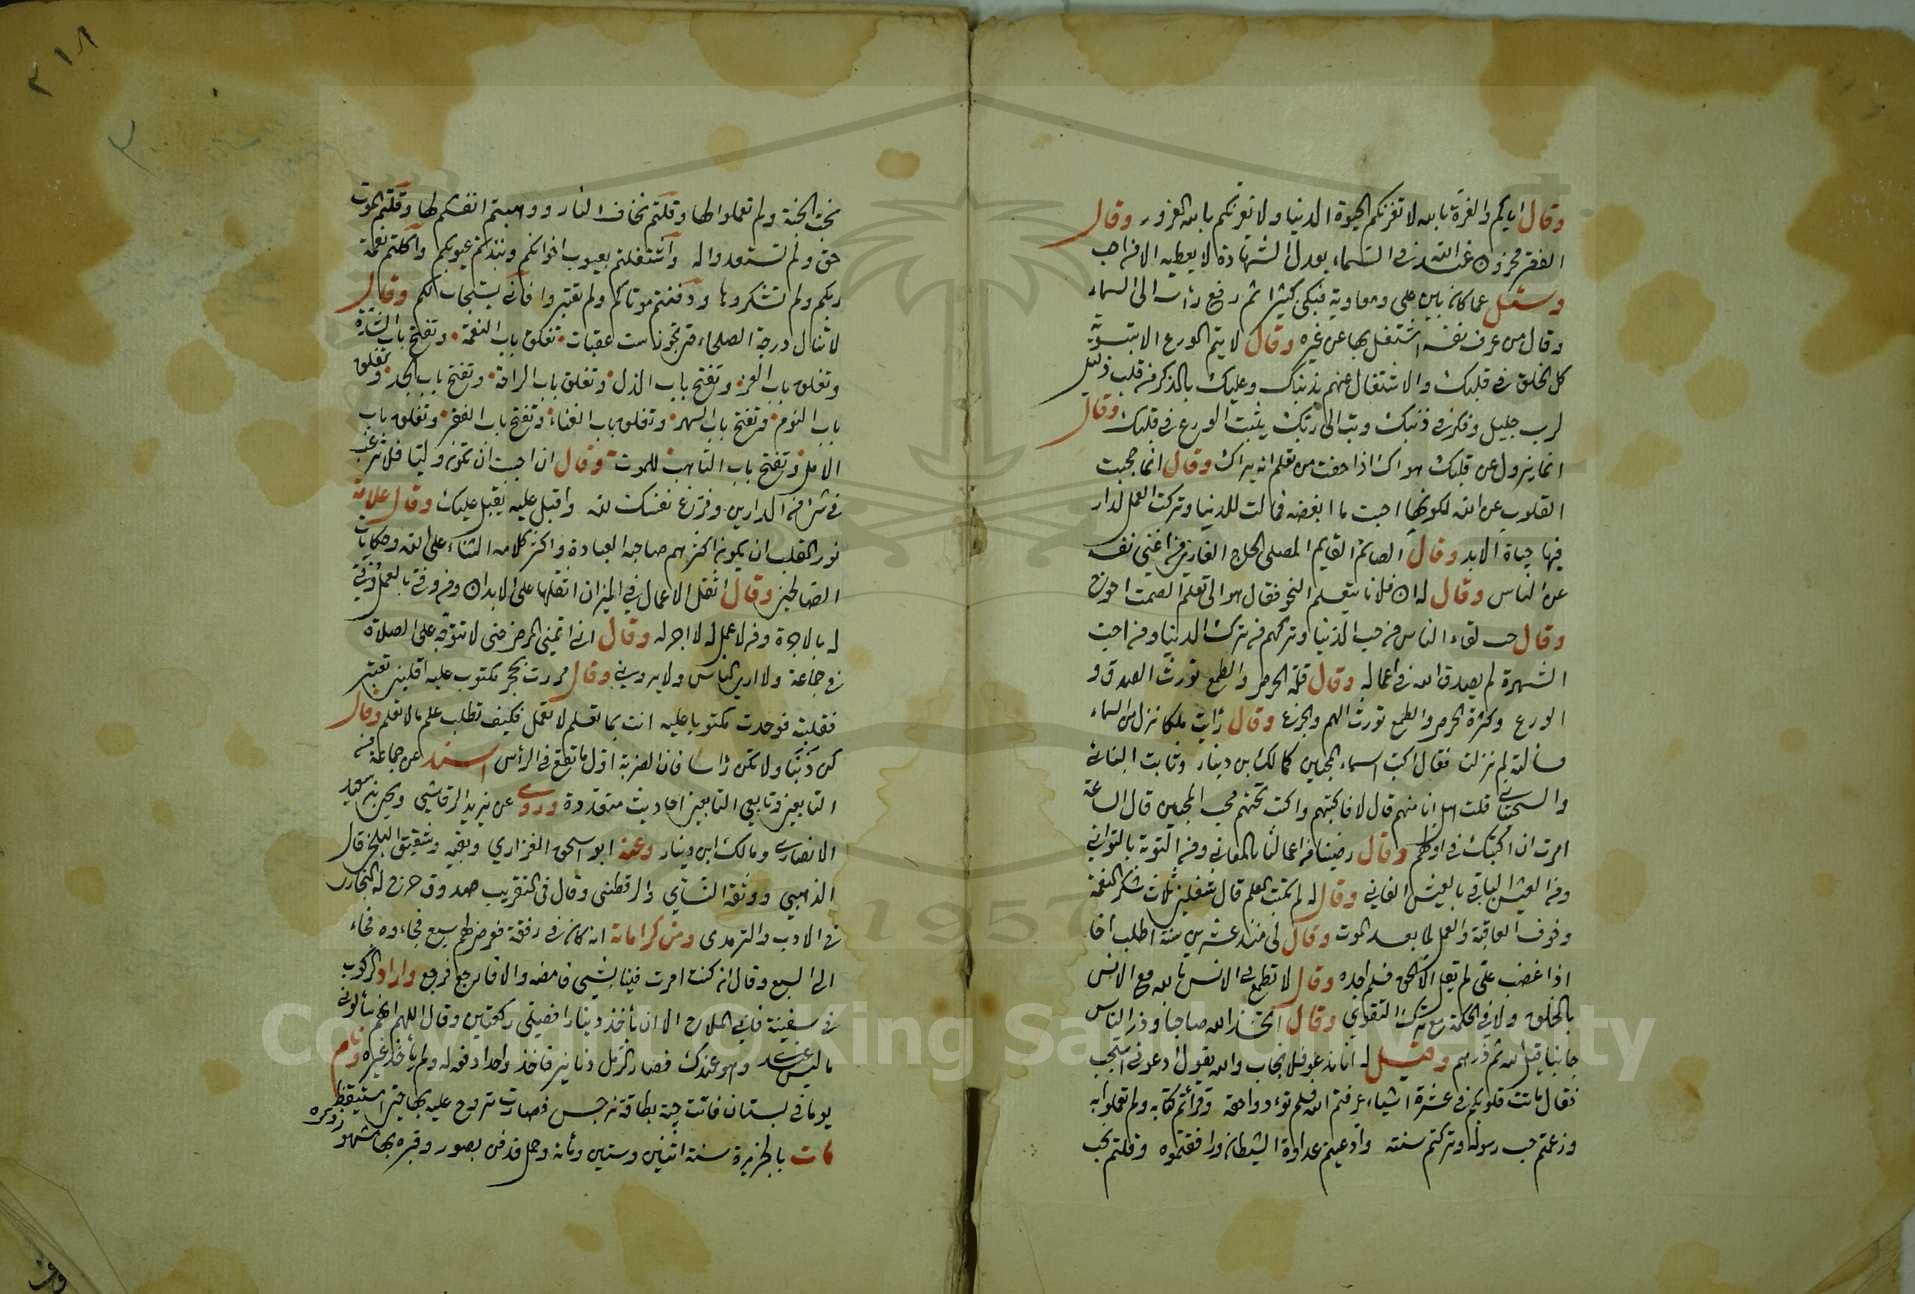 وقال اياكم والغرة بالله لا تغرنكم الحيوة الدنيا ولا يغرنكم بالله الغرور وقال
الفقر مخزون عند الله في السماء يعدل الشهادة لا يعطيه الا من احب
وسئل عما كان بين علي ومعاوية فبكى كثيرا ثم رفع رأسه الى السماء
وقال من عرف نفسه اشتغل بها عن غيره وقال لا يتم الورع الا
كل الخلق في قلبك والاشتغال عنهم بذنبك وعليك بالذكر من قلب ذليل
لرب جليل وفكر في ذنبك وتب الى ربك يثبت الورع في قلبك وقال
انما يزول عن قلبك هواك اذا خفت من تعلم انه يراك وقال انما حجبت
القلوب عن الله لكونها احبت ما ابغضه فمالت للدنيا وتركت العمل لدار
فيها حياة الابد وقال الصائم القايم المصلي الحاج الغازي من اغنى نفسه
عن الناس وقال له ان فلانا يتعلم النحو فقال هو الى تعلم الصمت احوج
وقال حب لقاء الناس من حب الدنيا وتركهم من ترك الدنيا ومن احب
الشهرة لم يصدق الله في اعماله وقال قلة الحرص والطمع تورث الصدق و
الورع وكثرة الحرص والطمع تورث الهم والجزع وقال رأيت ملكا نزل من السماء
فسألته لم نزلت فقال اكتب اسماء المحبين كمالك ابن دينار وثابت البناني
والسختياني قلت اهل انا منهم قال لا فاكتبهم واكتب تحتهم محب المحبين قال الساعة
امرت ان اكتبك في اولهم وقال رضينا من اعمالنا بالمعاني ومن التوبة بالتواني
ومن العيش الباقي بالعيش الفاني وقال له لم لم تكتب العلم قال شغلني ثلاث شكر النعمة
وخوف العاقبة والعمل لما بعد الموت وقال لي منذ عشرين سنة اطلب اخا
اذا غضب علي لم يقل الا الحق فلم اجده وقال لا تطمع في الانس بالله مع الانس
بالخلق ولا في الحكمة مع ترك التقوى وقال اتخذ الله صاحبا وذر الناس
جانبا وقيل له انا ندعو فلا نجاب والله يقول ادعوني استجب
فقال ماتت قلوبكم في عشرة اشياء عرفتم الله فلم تؤدوا حقه وقرأتم كتابه ولم تعملوا به
وزعمتم حب رسوله وتركتم سنته وادعيتم عداوة الشيطان ووافقتموه وقلتم نحب
نحب الجنة ولم تعملوا لها وقلتم نخاف النار ووهبتم انفسكم لها وقلتم الموت
حق ولم تستعدوا له واشتغلتم بعيوب اخوانكم ونبذتم عيوبكم واكلتم نعمة
ربكم ولم تشكروها ودفنتم موتاكم ولم تعتبروا فأنى يستجاب لكم وقال
لا تنال درجة الصلحاء حتى تجوز ست عقبات تغلق باب النعمة وتفتح باب الشدة
وتغلق باب العز وتفتح باب الذل وتغلق باب الراحة وتفتح باب الجد وتغلق
باب النوم وتفتح باب السهر وتغلق باب الغناء وتفتح باب الفقر وتغلق باب
الامل وتفتح باب التاهب للموت وقال ان احببت ان تكون وليا فلا ترغب
في شئ من الدارين وفرغ نفسك لله واقبل عليه يقبل عليك وقال علامة
نور القلب ان يكون اكثر هم صاحبه العبادة واكثر كلامه الثناء على الله وحكايات
الصالحين وقال اثقل الاعمال في الميزان اثقلها على الابدان ومن وفى بالعمل وفي
له بالاجرة ومن لا عمل له لا اجر له وقال اني اتمنى المرض حتى لا تتوجه علي الصلاة
في جماعة ولا ارى الناس ولا يروني وقال مررت بحجر مكتوب عليه اقلبني تعتبر
فقلبته فوجدت مكتوبا عليه انت بما تعلم لا تعمل فكيف تطلب علم ما لا تعلم وقال
كن ذنبا ولا تكن رأسا فان الضربة اول ما تقع في الرأس اسند عن جماعة من
التابعين وتابعي التابعين احاديث متعددة وروى عن يزيد الرقاشي ويحيى بن سعيد
الانصاري ومالك ابن دينار وعنه ابو اسحق الفزاري وبقية وشقيق البلخي قال
الذهبي ووثقه النسأي والدرقطني وقال في التقريب صدوق خرج له البخاري
في الادب والترمذى ومن كراماته انه كان في رفقة فعرض لهم سبع فجاءوه فجاء
الى السبع وقال ان كنت امرت فينا بشيئ فامضه والا فارجع فرجع واراد الركوب
في سفينة فابى الملاح الا ان يأخذ دينارا فصلى ركعتين وقال اللهم انهم سألوني
ما ليس عندي وهو عندك فصار الرمل دنانير فاخذ واحدا دفعه له ولم يأخذ غيره ونام
يوما في بستان فاتت حية بطاقة نرجس فصارت تروح عليه بها حتى استيقظ
مات بالجزيرة سنة اثنين وستين ومأة وحمل فدفن بصور وقبره بها مشهور